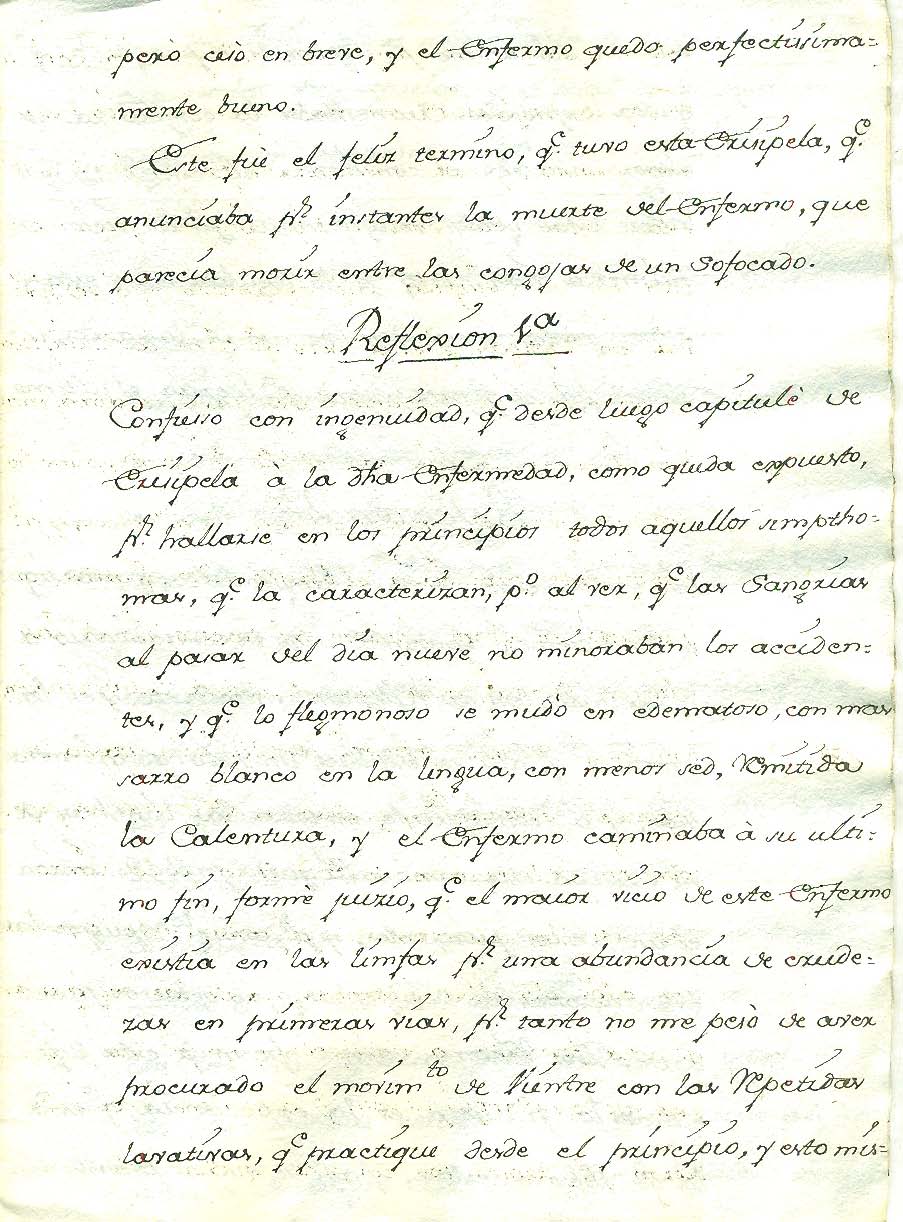 pero cesò en breve, y el Enfermo quedo perfectissima=
mente bueno.
Este fuè el feliz termino, q.e tuvo esta Erisipela, q.e
anunciaba p.r instantes la muerte del Enfermo, que
parecia morir entre las congojas de un Sofocado.
Reflexion 1a
Confiesso con ingenuidad, q.e desde luego capitulè de
Erisipela à la dha Enfermedad, como queda expuesto,
p.r hallarse en los principios todos aquellos simptho=
mas, q.e la caracterizan, p.o al ver, q.e las Sangrias
al pasar del dia nueve no minoraban los acciden=
tes, y q.e lo flegmonoso se mudò en edematoso, con mas
sarro blanco en la lengua, con menos sed, Remitida
la Calentura, y el Enfermo caminaba à su ulti=
mo fin, formè juizio, q.e el maior vicio de este Enfermo
existia en las limfas p.r una abundancia de crude=
zas en primeras vias, p.r tanto no me pesò de aver
procurado el movim.to de Vientre con las Repetidas
lavativas, q.e practique desde el principio, y esto mis=